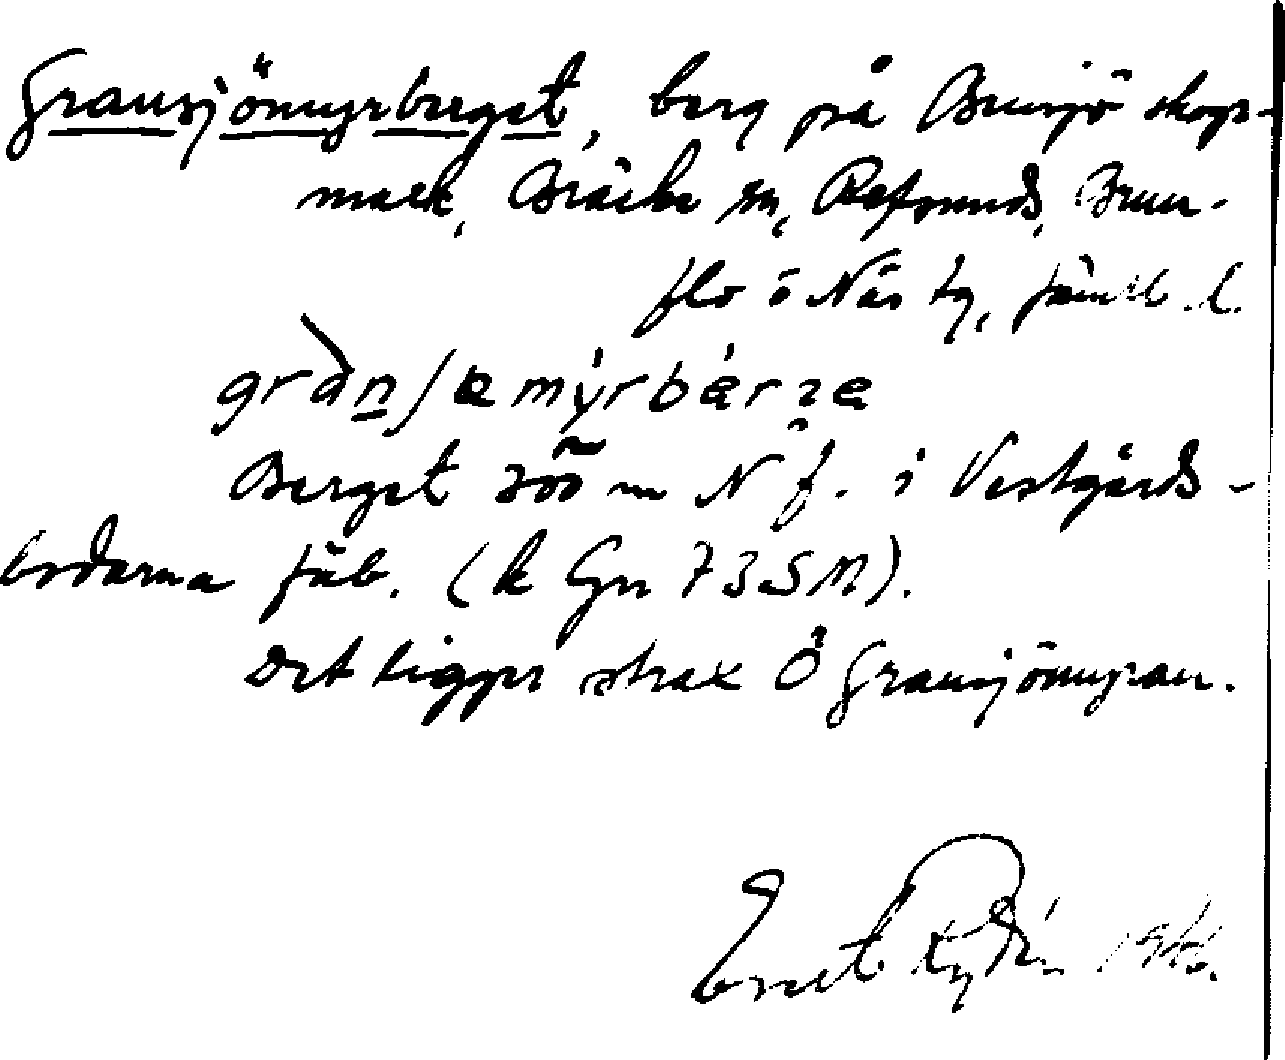 Gransjömyrberget, berg på Bensjö skogs-
mark, Bräcke sn, Refsunds, Brun-
flo o Näs tg, Jämtl. l.
Berget 300 m N f. i Vestgårds-
bodarna fäb. (k Gn 73 SM).
Det ligger strax Ö Gransjömyran.
Ernst Rydén